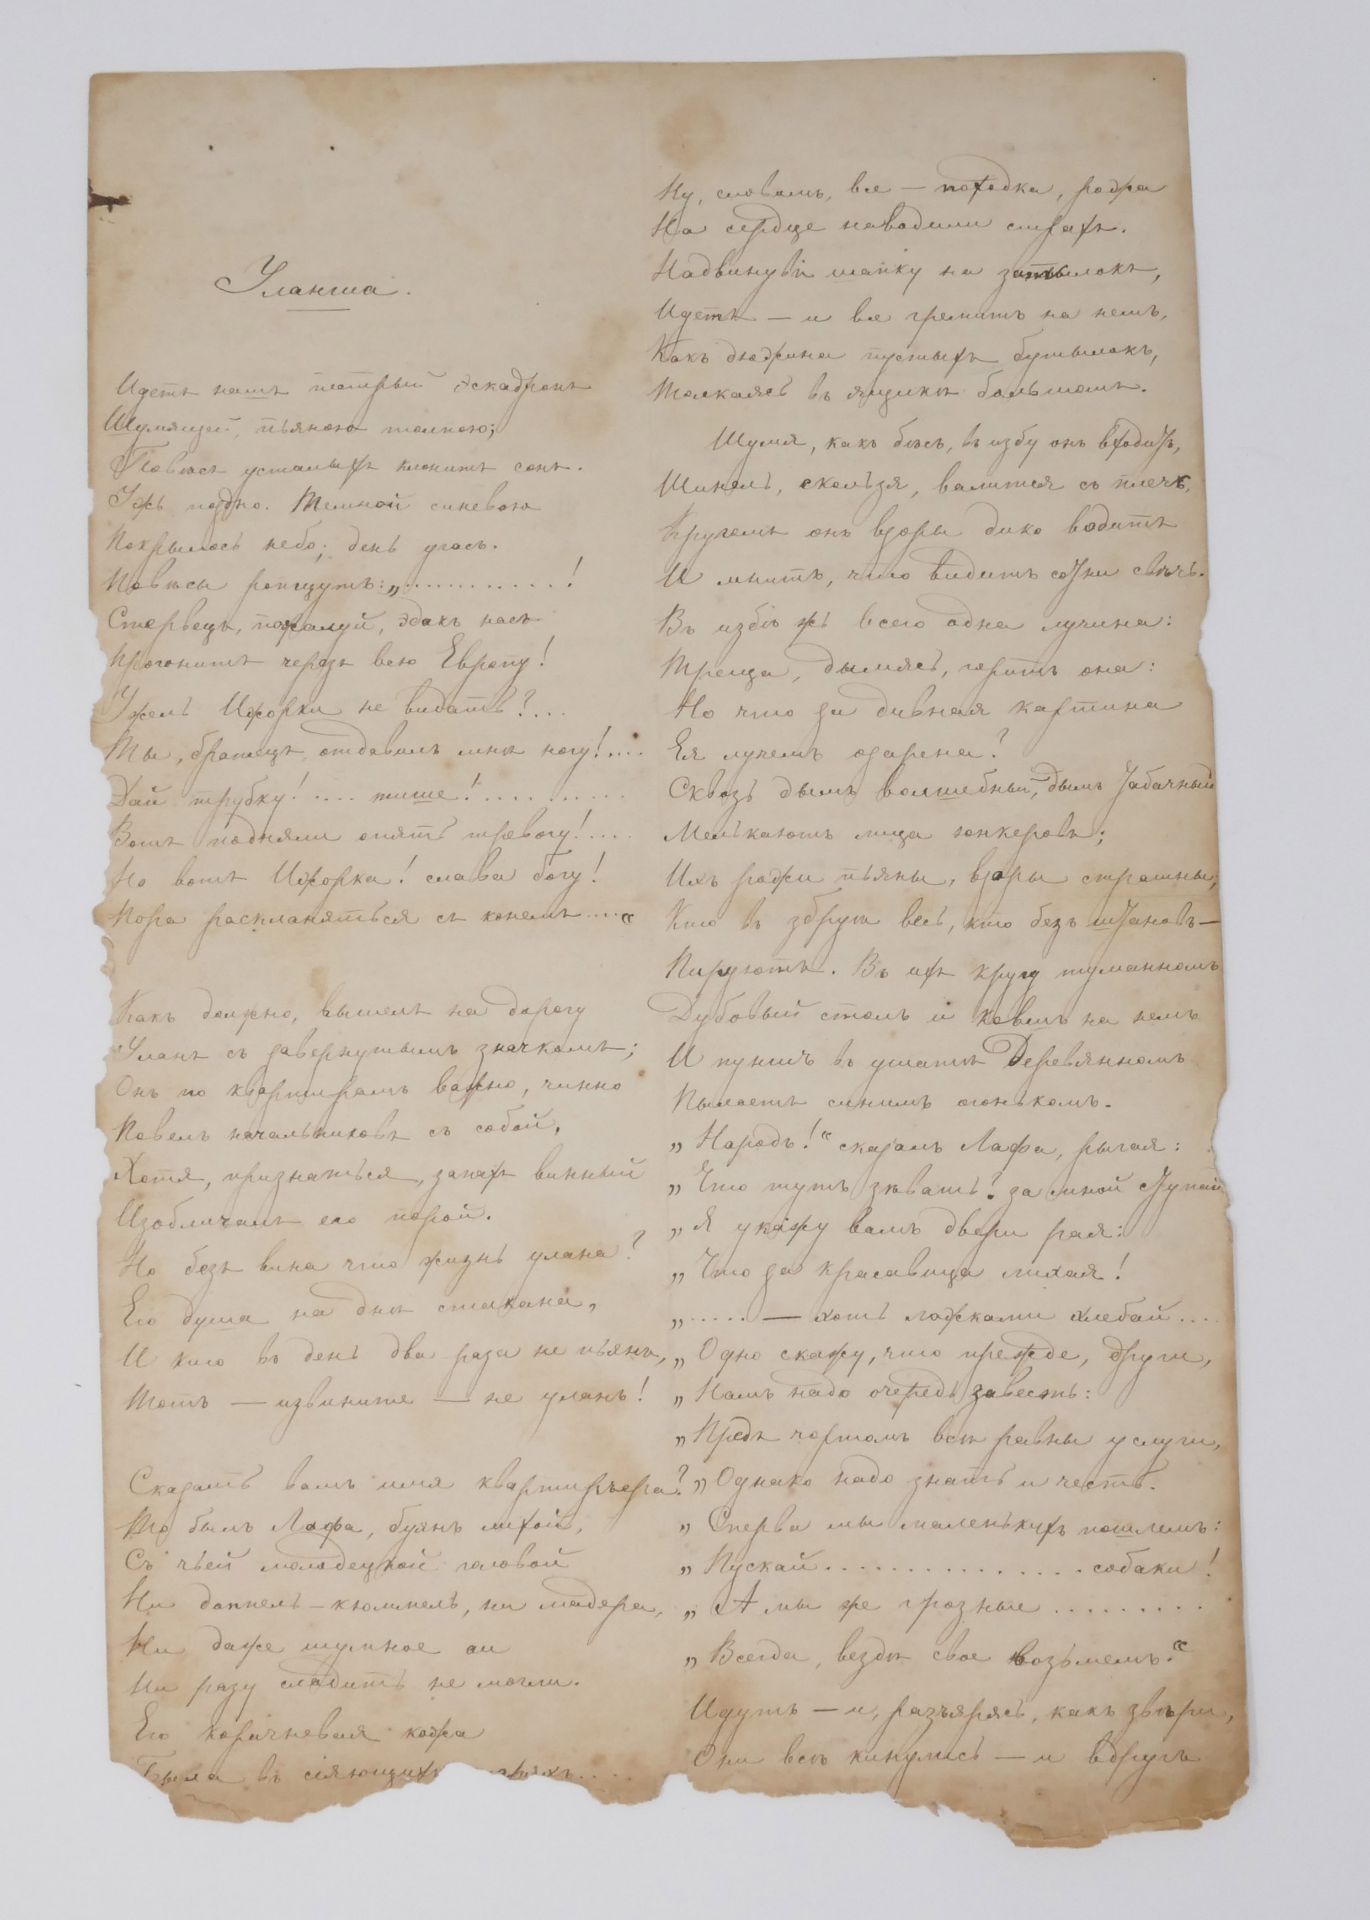 Уланша.
Идетъ нашъ пестрый эскадронъ
Шумящей, пьяною толпою;
Повѣсъ усталыхъ клонитъ сонъ.
Ужъ поздно. Темной синевою
Покрылось небо; день угасъ.
Повѣсы ропщутъ: „...........!
Стервецъ, пожалуй, эдакъ насъ
Прогонитъ черезъ всю Европу!
Ужель Ижорки не видать?...
Ты, братецъ, отдавилъ мнѣ ногу!....
Дай трубку!.... тише!..........
Вотъ подняли опять тревогу!....
Но вотъ Ижорка! слава богу!
Пора раскланяться съ конемъ...."
Какъ должно, вышелъ на дорогу
Уланъ съ завернутымъ значкомъ;
Онъ по квартирамъ важно, чинно
Повелъ начальниковъ съ собой,
Хотя, признаться, запахъ винный
Изобличалъ его порой.
Но безъ вина что жизнь улана?
Его душа на днѣ стакана,
И кто въ день два раза не пьянъ,
Тотъ — извините — не уланъ!
Сказать вамъ имя квартирьера?
То былъ Лафа, буянъ лихой,
Съ чьей молодецкой головой
Ни доппель-кюммель, ни мадера,
Ни даже шумное аи
Ни разу сладить не могли.
Его коричневая кожа
Была въ сіяющихъ
Ну, словомъ, все — походка, рожа
На сердце наводили страхъ.
Надвинувъ шапку на затылокъ,
Идетъ — и все гремитъ на немъ,
Какъ дюжина пустыхъ бутылокъ,
Толкаясь въ ящикѣ большомъ.
Шумя, какъ бѣсъ, въ избу онъ входитъ,
Шинель, скользя, валится съ плечъ,
Кругомъ онъ взоры дико водитъ
И мнитъ, что видитъ сотни свѣчъ.
Въ избѣ жъ всего одна лучина:
Треща, дымясь, горитъ она:
Но что за дивная картина
Ея лучемъ озарена?
Сквозь дымъ волшебный, дымъ табачный
Мелькаютъ лица юнкеровъ;
Ихъ рожи пьяны, взоры страшны,
Кто въ збруѣ весь, кто безъ штановъ —
Пируютъ. Въ ихъ кругу туманномъ
Дубовый столъ и ковшъ на немъ
И пуншъ въ ушатѣ деревянномъ
Пылаетъ синимъ огонькомъ.
„Народъ!" сказалъ Лафа, рыгая:
„Что тутъ зѣвать! за мной ступай
„Я укажу вамъ двери рая:
„Что за красавица лихая!
„..... — хоть ложками хлебай....
„Одно скажу, что прежде, други,
„Намъ надо очередь завесть:
„Предъ чортомъ всѣ равны услуги,
„Однако надо знать и честь.
„Сперва мы маленькихъ пошлемъ:
„Пускай ............... собаки!
„А мы же грозные .........
„Всегда, вездѣ свое возьмемъ."
Идутъ — и, разъярясь, какъ звѣри,
Они всѣ кинулись — и вдругъ